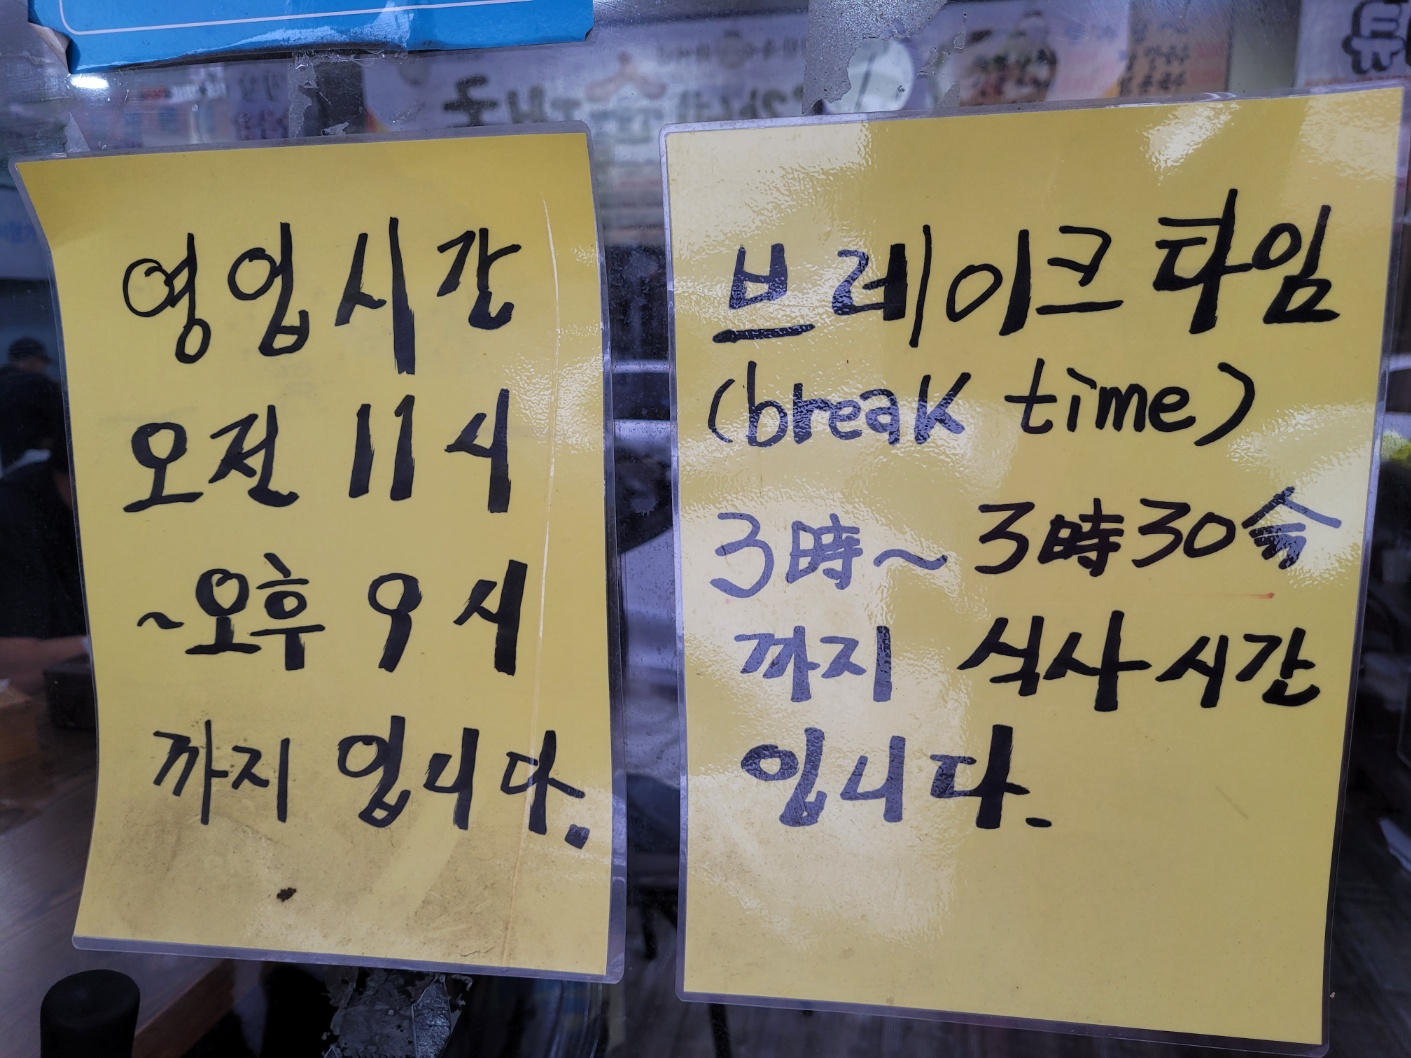 영업시간
오전 11시
~오후 9시
까지 입니다.
브레이크타임
(break time)
3時~3時30分
까지 식사시간
입니다.